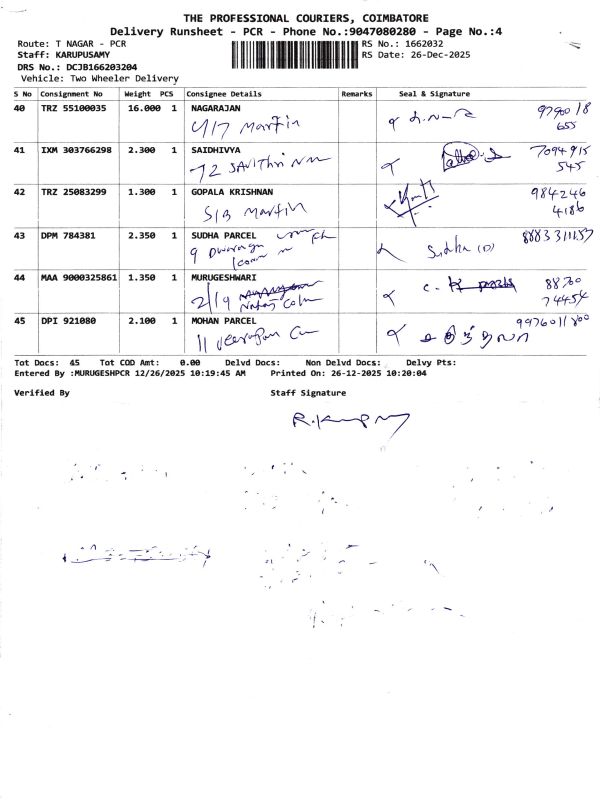 THE PROFESSIONAL COURIERS, COIMBATORE
Delivery Runsheet - PCR - Phone No.:9047080280 - Page No.:4
Route: T NAGAR - PCR
Staff: KARUPUSAMY
DRS No.: DCJB166203204
Vehicle: Two Wheeler Delivery
RS No.: 1662032
RS Date: 26-Dec-2025
S No Consignment No Weight PCS Consignee Details Remarks Seal & Signature
40 TRZ 55100035 16.000 1 NAGARAJAN
Martin
655
41 IXM 303766298 2.300 1 SAIDHIVYA 7094915
72 Savithri 545
42 TRZ 25083299 1.300 1 GOPALA KRISHNAN 984246
S/B Martin 4186
43 DPM 784381 2.350 1 SUDHA PARCEL
9 Sudha (D)
44 MAA 9000325861 1.350 1 MURUGESHWARI
2/19 74454
45 DPI 921080 2.100 1 MOHAN PARCEL
11
Tot Docs: 45 Tot COD Amt: 0.00 Delvd Docs: Non Delvd Docs: Delvy Pts:
Entered By :MURUGESHPCR 12/26/2025 10:19:45 AM Printed On: 26-12-2025 10:20:04
Verified By Staff Signature